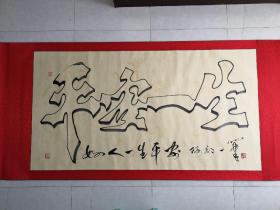 平安一生
好人一生平安